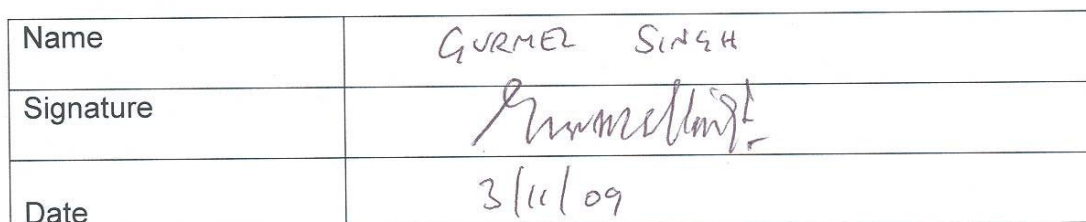 Name GURMEL SINGH
Signature
Date 3/11/09